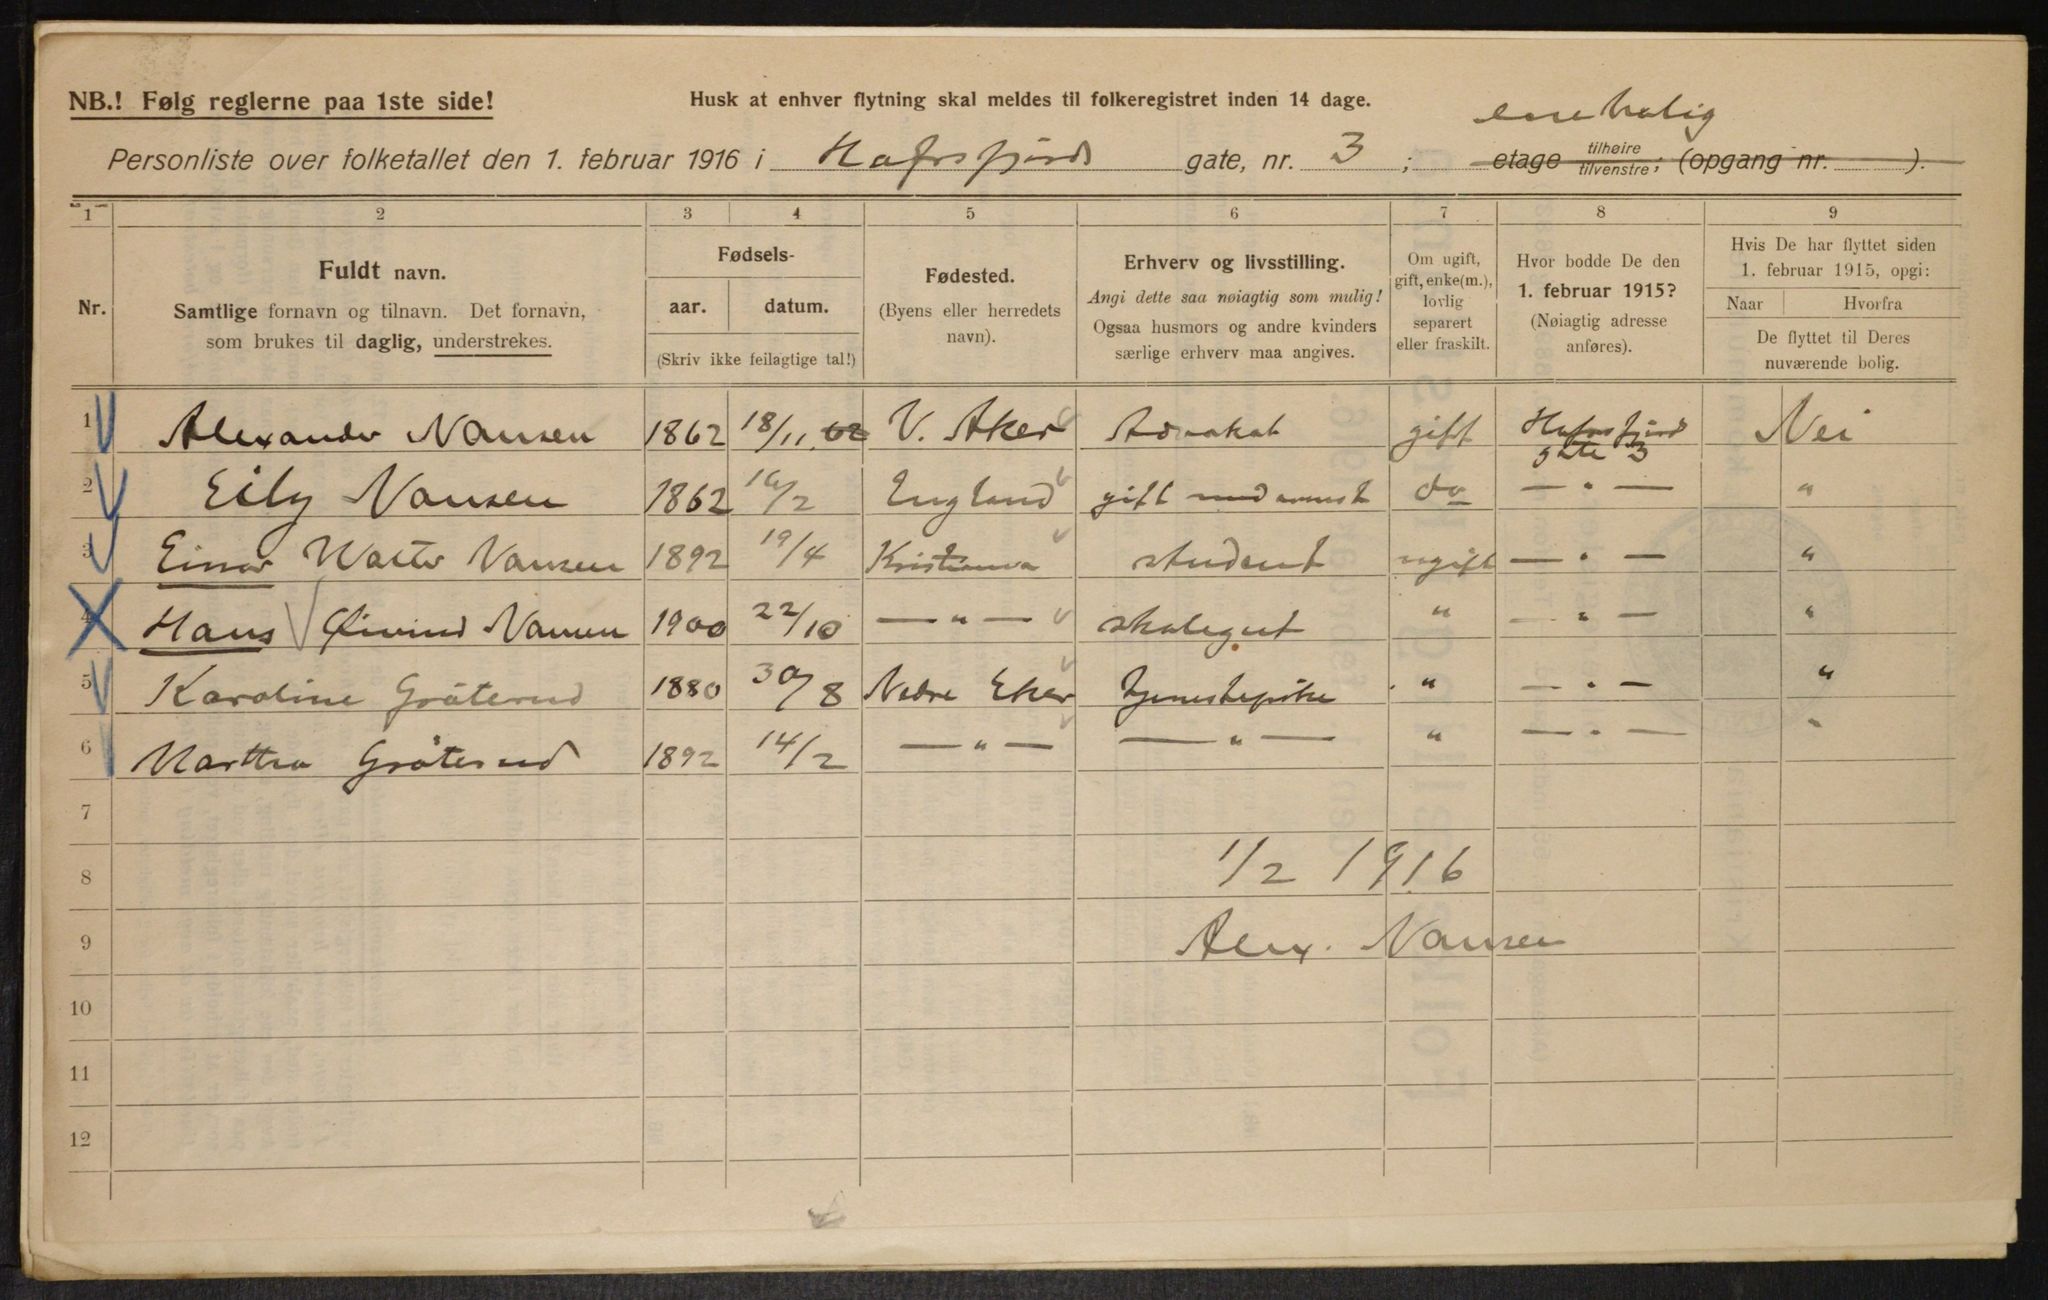 NB.! Følg reglerne paa 1ste side!
Husk at enhver flytning skal meldes til folkeregistret inden 14 dage.
enebolig
Personliste over folketallet den 1. februar 1916 i Hafrsfjords gate, nr. 3 ; etage tilhøire tilvenstre; (opgang nr. ).
1 2 3 4 5 6 7 8 9
Nr.
Fuldt navn.
Samtlige fornavn og tilnavn. Det fornavn,
som brukes til daglig, understrekes.
Fødsels-
aar. datum.
(Skriv ikke feilagtige tal!)
Fødested.
(Byens eller herredets
navn).
Erhverv og livsstilling.
Angi dette saa nøiagtig som mulig!
Ogsaa husmors og andre kvinders
særlige erhverv maa angives.
Om ugift,
gift, enke(m.),
lovlig
separert
eller fraskilt.
Hvor bodde De den
1. februar 1915?
(Nøiagtig adresse
anføres).
Hvis De har flyttet siden
1. februar 1915, opgi:
Naar Hvorfra
De flyttet til Deres
nuværende bolig.
1 Alexander Nansen 1862 18/11 62 V. Aker Advokat gift Hafrsfjords gate 3 Nei
2 Eily Nansen 1862 16/2 England gift med ovennst do — " — "
3 Einar Walter Nansen 1892 19/4 Kristiania student ugift — " — "
4 Hans Øivind Nansen 1900 22/10 — " — skolegut " — " — "
5 Karoline Gråterud 1880 30/8 Nedre Eker tjenestepike " — " — "
6 Martha Gråterud 1892 14/2 — " — — " — " — " — "
7
8 1/2 1916
9 Alex. Nansen
10
11
12